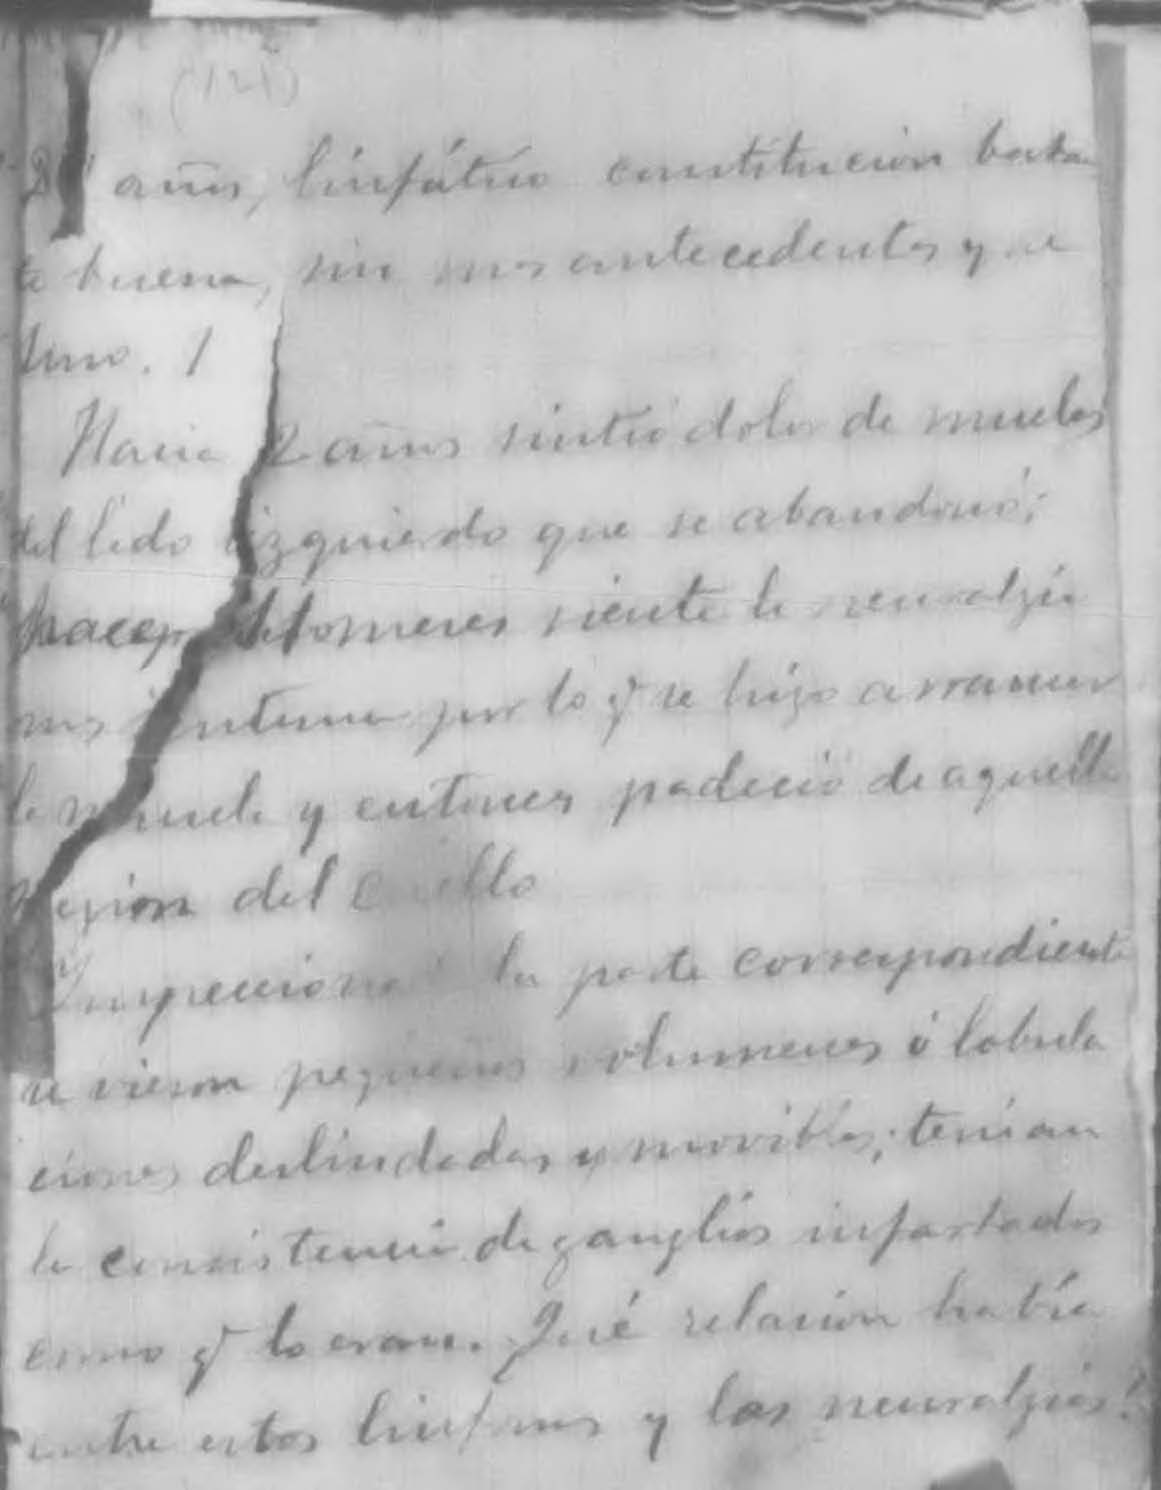 (121)
años, linfático constitucion bastan
te buena, sin mas antecedentes que
Hacia 2 años sintió dolor de muelas
del lado izquierdo que se abandonó;
hace meses siente la neuralgia
mas intensa por lo q̃ se hizo arrancar
la muela y entonces padeció de aquella
region del cuello
Inspeccionada la parte correspondiente
se vieron pequeños volumenes ó lobula
ciones deslindadas y movibles; tenian
la consistencia de ganglios infartados
como q̃ lo eran. Qué relacion habia
entre estos linfomas y las neuralgias?